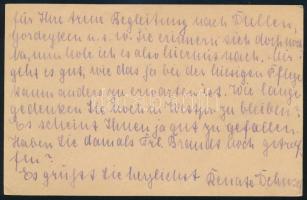 für Ihre treue Begleitung nach Stellen,
Hordeyken u.s.w. Sie erinnern sich doch noch
ja, nun hole ich es also hiermit nach. Mir
geht es gut, wie das ja bei der hiesigen Pflege
kaum anders zu erwarten ist. Wie lange
gedenken Sie noch in zu bleiben?
Es scheint Ihnen ja gut zu gefallen.
Haben Sie damals Frl. Brandt noch getrof-
fen?
Es grüßt Sie herzlichst Renate